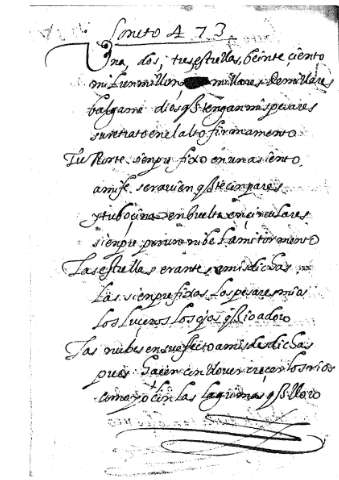 Soneto 473.
Una, dos, tres estrellas, beinte ciento
mil, un millon, millares de millares
balgame dios q̃ tengan mis pesares
su retrato en el alto firmamento
Tu Norte siempre fixo en un asiento
a mi fe sera bien q̃ te conpares
y tu bocina en buelta en circulares
siempre mi tormento
Las estrellas erantes a mis dichas
las siempre fixas los pesares mios
los luzeros los ojos q̃ io adoro
las nubes en su efecto a mis desdichas
pues hacen con llover crecer los rios
como yo con las lagrimas q̃ lloro